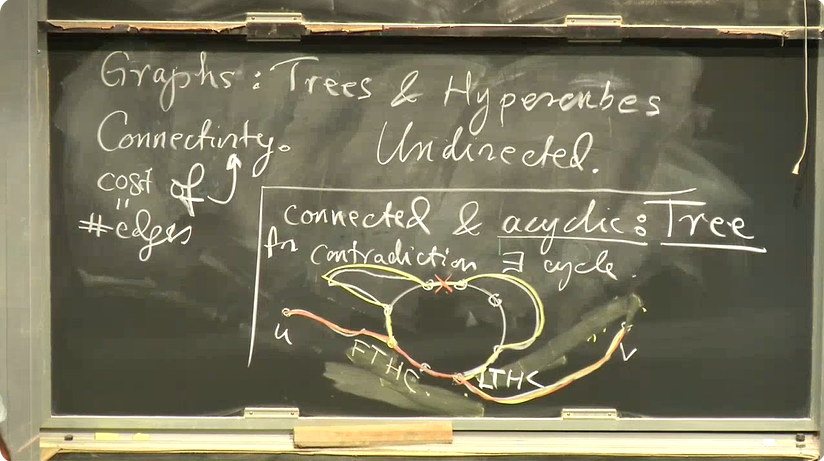 Graphs: Trees & Hypercubes
Connectivity. Undirected.
cost of
"
#edges
connected & acyclic: Tree
for contradiction ∃ cycle.
u
FTHC
LTHC
v